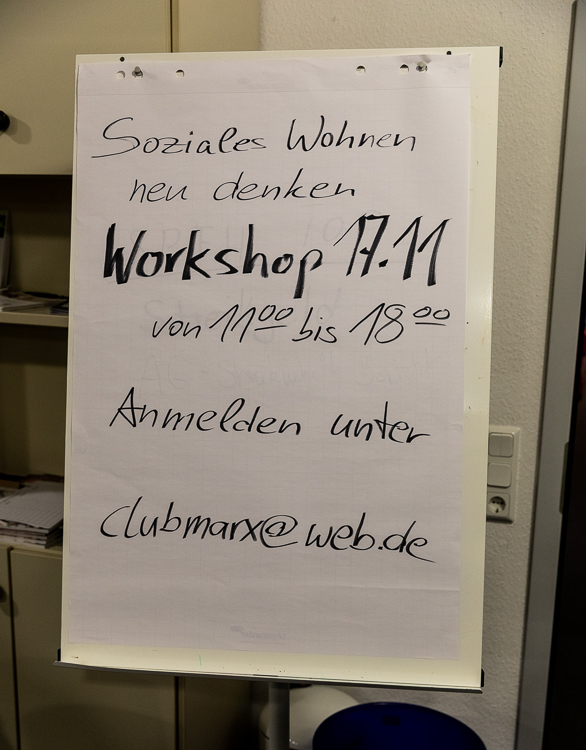 Soziales Wohnen
neu denken
Workshop 17.11
von 11⁰⁰ bis 18⁰⁰
Anmelden unter
clubmarx@web.de